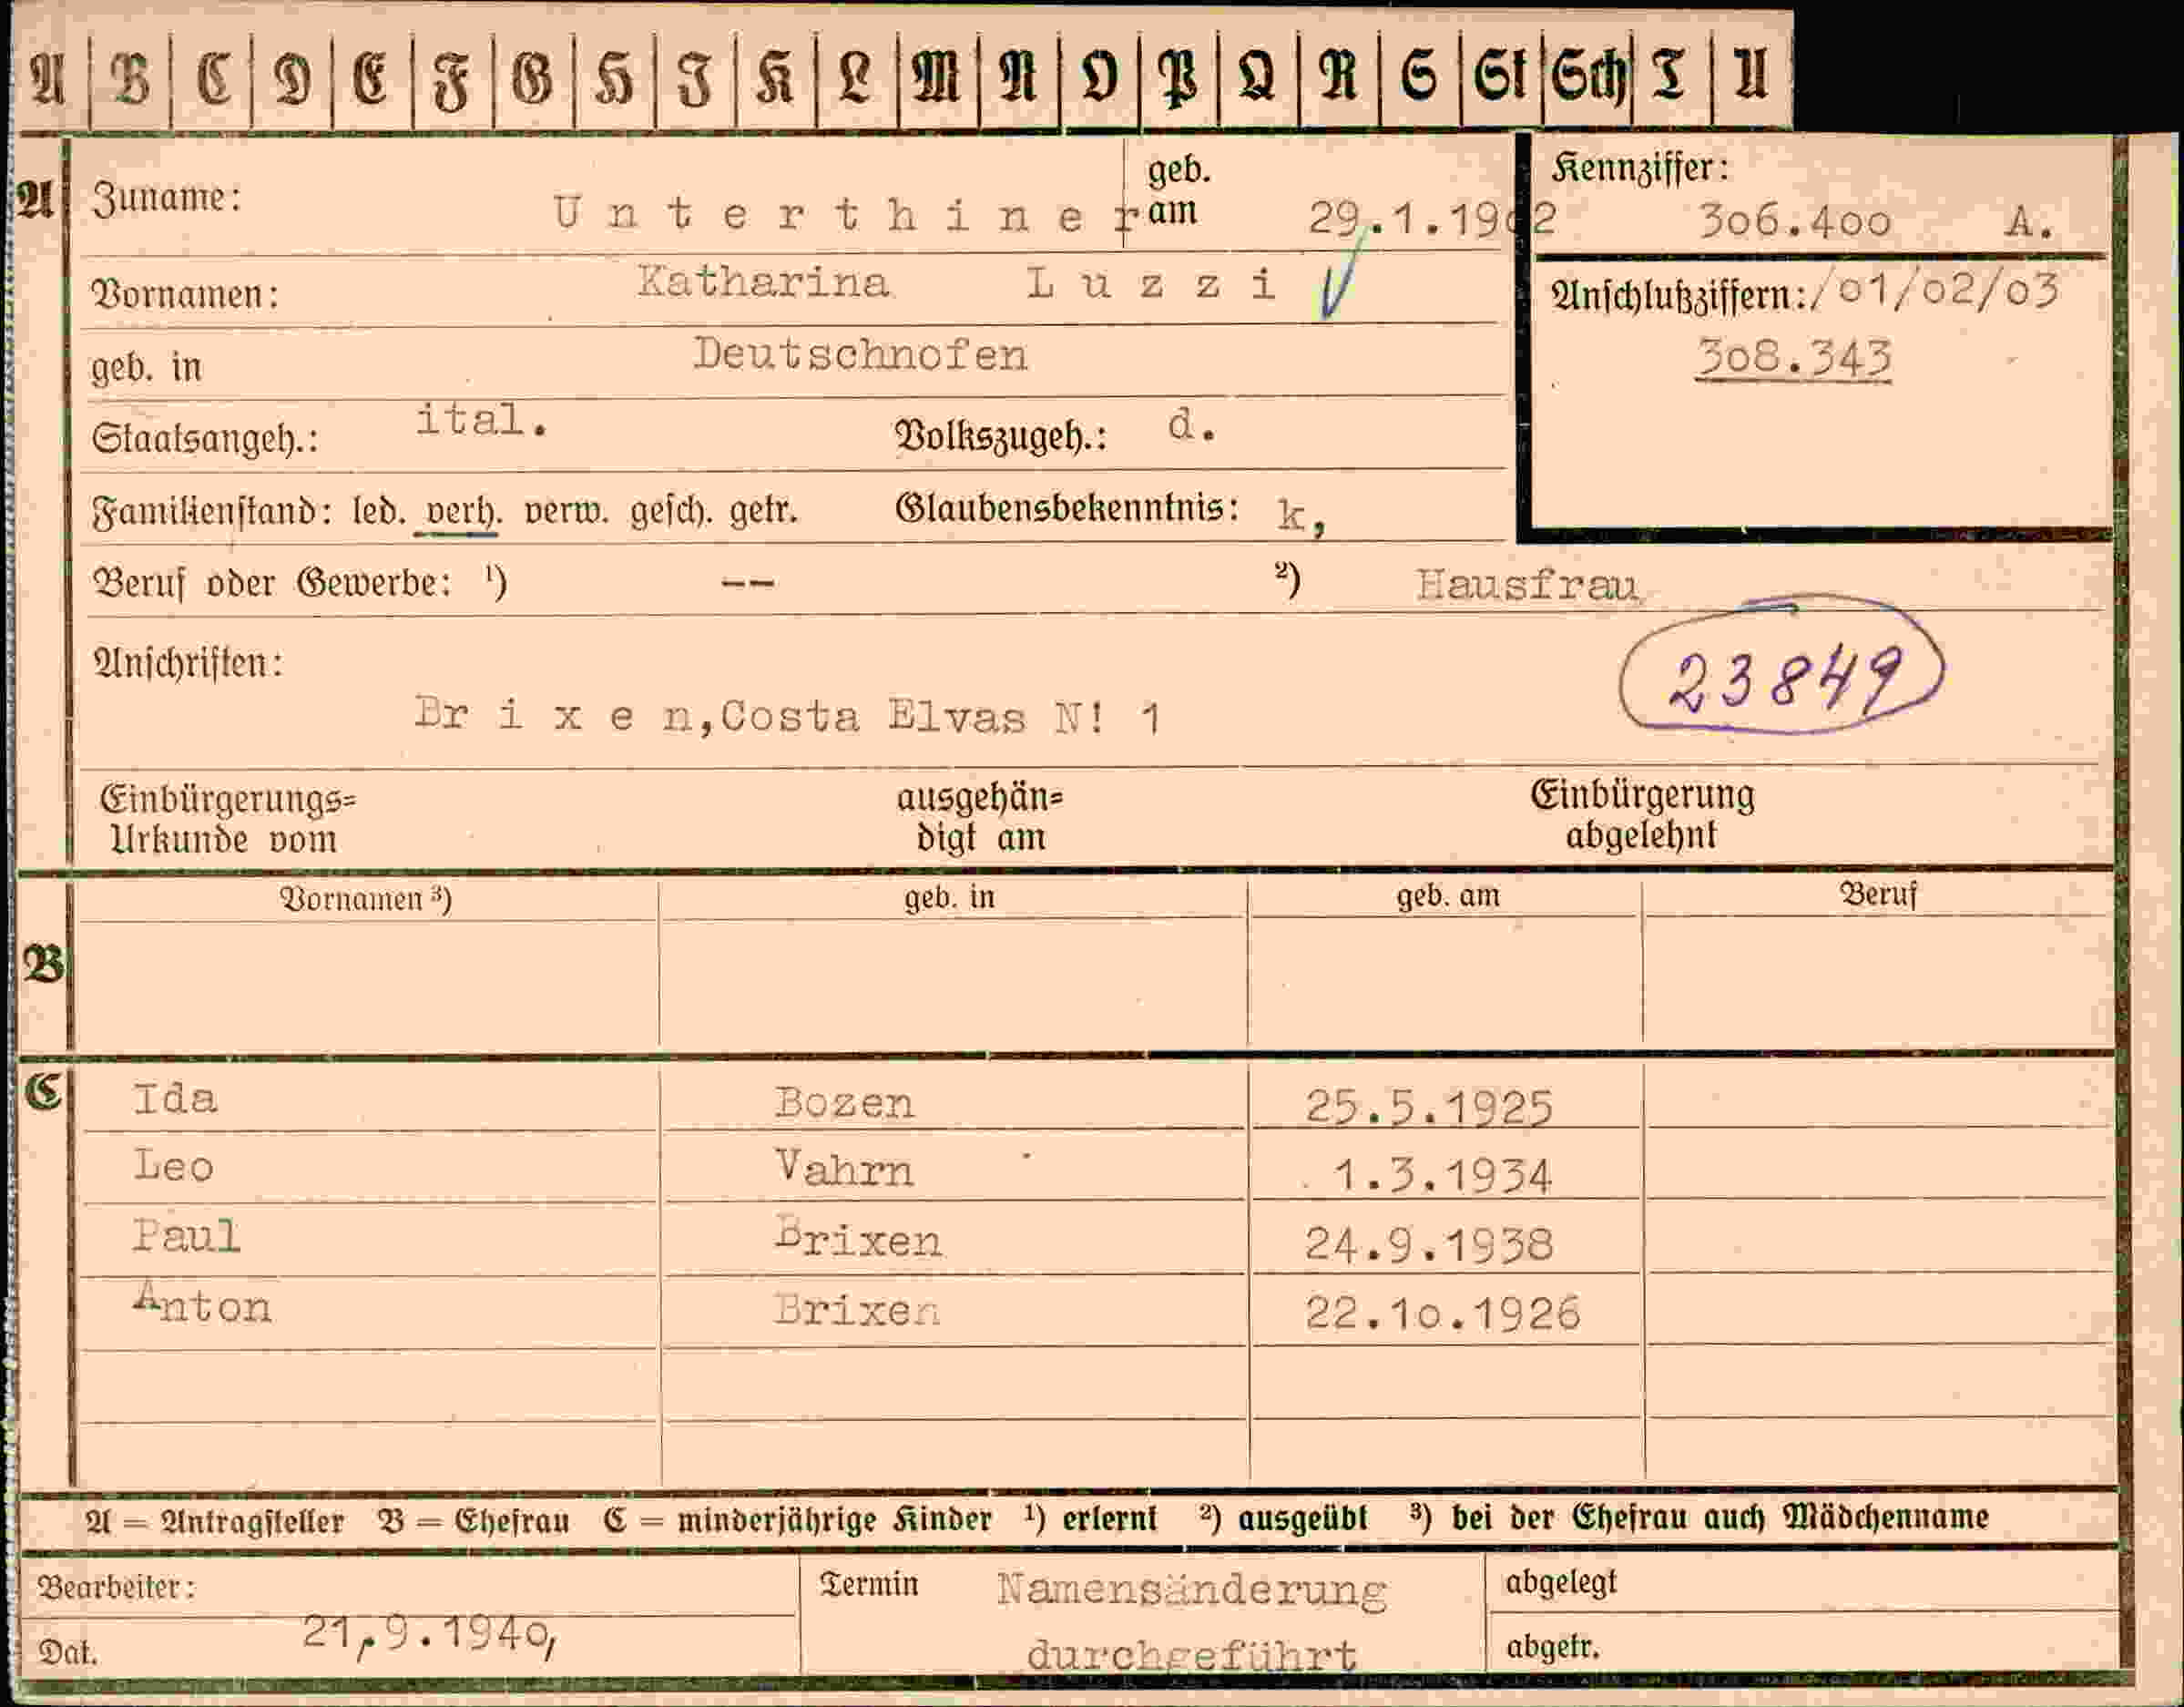 A B C D E F G H I K L M N O P Q R S St Sch T U
A Zuname: Unterthiner geb. am 29.1.1902 Kennziffer: 306.400 A.
Vornamen: Katharina Luzzi Anschlußziffern: /01/02/03
geb. in Deutschnofen 308.343
Staatsangeh.: ital. Volkszugeh.: d.
Familienstand: led. verh. verw. gesch. getr. Glaubensbekenntnis: k,
Beruf oder Gewerbe: ¹) -- ²) Hausfrau
Anschriften: 23849
Brixen, Costa Elvas N! 1
Einbürgerungs= ausgehän= Einbürgerung
Urkunde vom digt am abgelehnt
Vornamen ³) geb. in geb. am Beruf
B
C Ida Bozen 25.5.1925
Leo Vahrn 1.3.1934
Paul Brixen 24.9.1938
Anton Brixen 22.10.1926
A = Antragsteller B = Ehefrau C = minderjährige Kinder ¹) erlernt ²) ausgeübt ³) bei der Ehefrau auch Mädchenname
Bearbeiter: Termin Namensänderung abgelegt
Dat. 21,9.1940, durchgeführt abgetr.